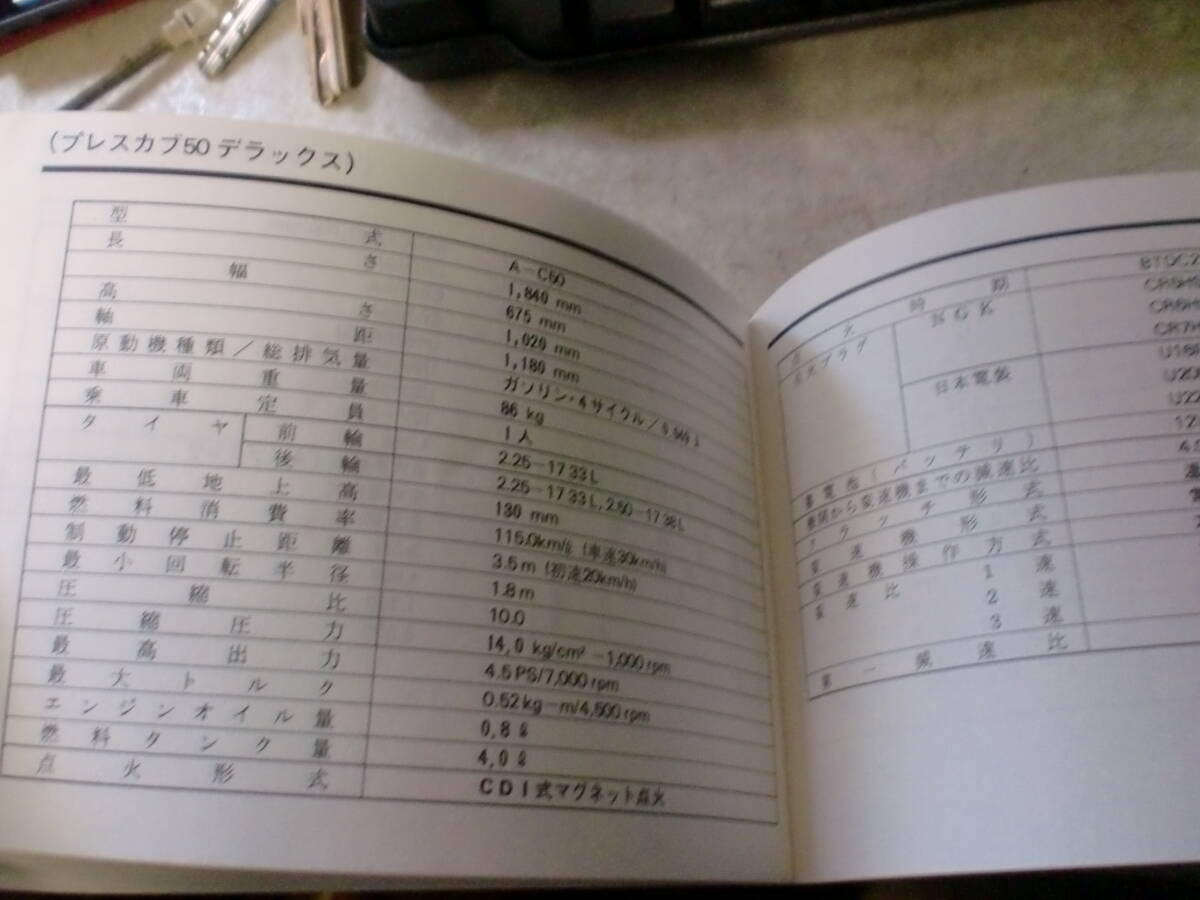 (プレスカブ50 デラックス)
型 式 A-C50
長 さ 1,840 mm
幅 675 mm
高 さ 1,020 mm
軸 距 1,180 mm
原動機種類/総排気量 ガソリン・4サイクル/0.049 ℓ
車両重量 86 kg
乗車定員 1人
タイヤ 前輪 2.25-17 33L
後輪 2.25-17 33L, 2.50-17 38L
最低地上高 130 mm
燃料消費率 115.0km/ℓ (車速30km/h)
制動停止距離 3.5m (初速20km/h)
最小回転半径 1.8m
圧縮比 10.0
圧縮圧力 14.0 kg/cm²-1,000 rpm
最高出力 4.5PS/7,000 rpm
最大トルク 0.52kg-m/4,500 rpm
エンジンオイル量 0.8ℓ
燃料タンク量 4.0ℓ
点火形式 CDI式マグネット点火
点火時期 BTDC2
点火プラグ NGK CR5H
CR6H
CR7H
日本電装 U16
U20
U22
蓄電池(バッテリ) 12
機関から変速機までの減速比 4
クラッチ形式
変速機形式
変速機操作方式
変速比 1速
2速
3速
第一減速比